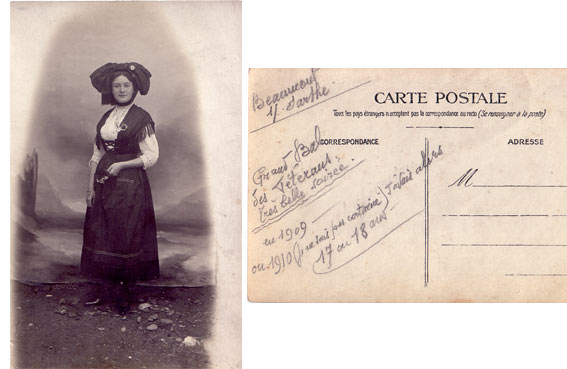 Beaumont
s/ Sarthe
CARTE POSTALE
Tous les pays étrangers n'acceptent pas la correspondance au recto (Se renseigner à la poste)
CORRESPONDANCE
ADRESSE
Grand Bal
des Vétérans.
très belle soirée.
en 1909
ou 1910 (je ne suis pas certaine) J'avais alors
17 ou 18 ans
M